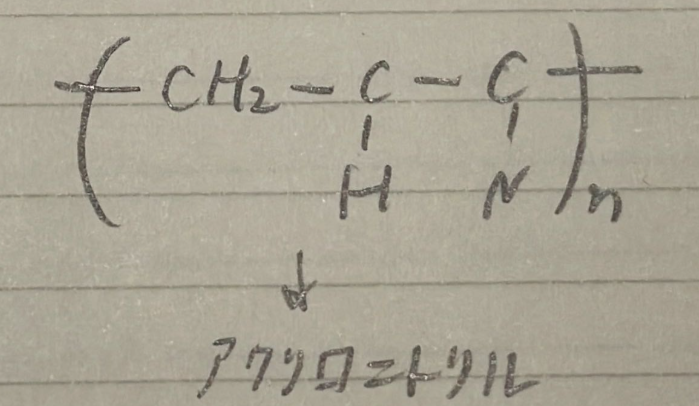 ( CH₂ - C - C )n
H N
↓
アクリロニトリル